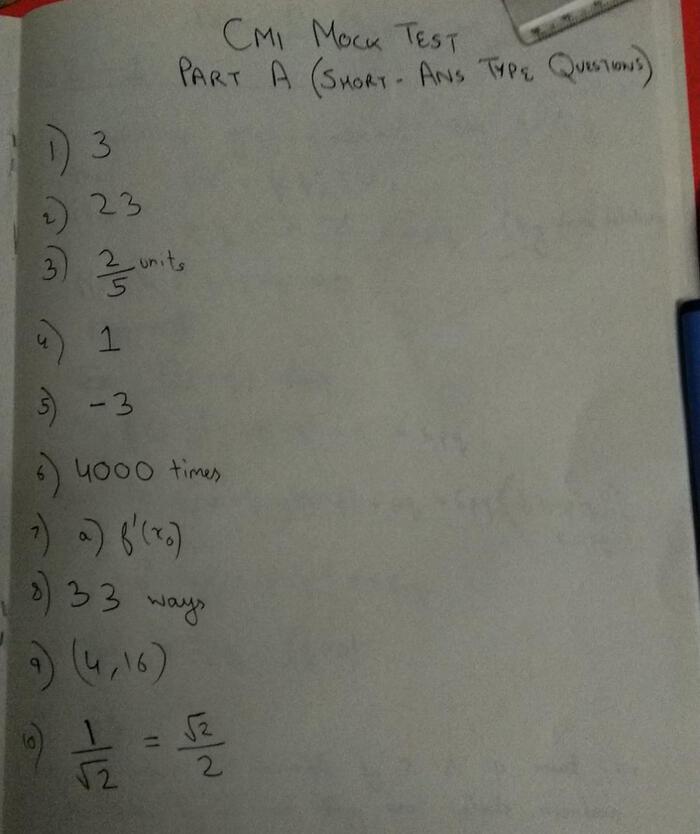 CMI MOCK TEST
PART A (SHORT-ANS TYPE QUESTIONS)
1) 3
2) 23
3) 2/5 units
4) 1
5) -3
6) 4000 times
7) a) f'(x₀)
8) 33 ways
9) (4,16)
10) 1/√2 = √2/2